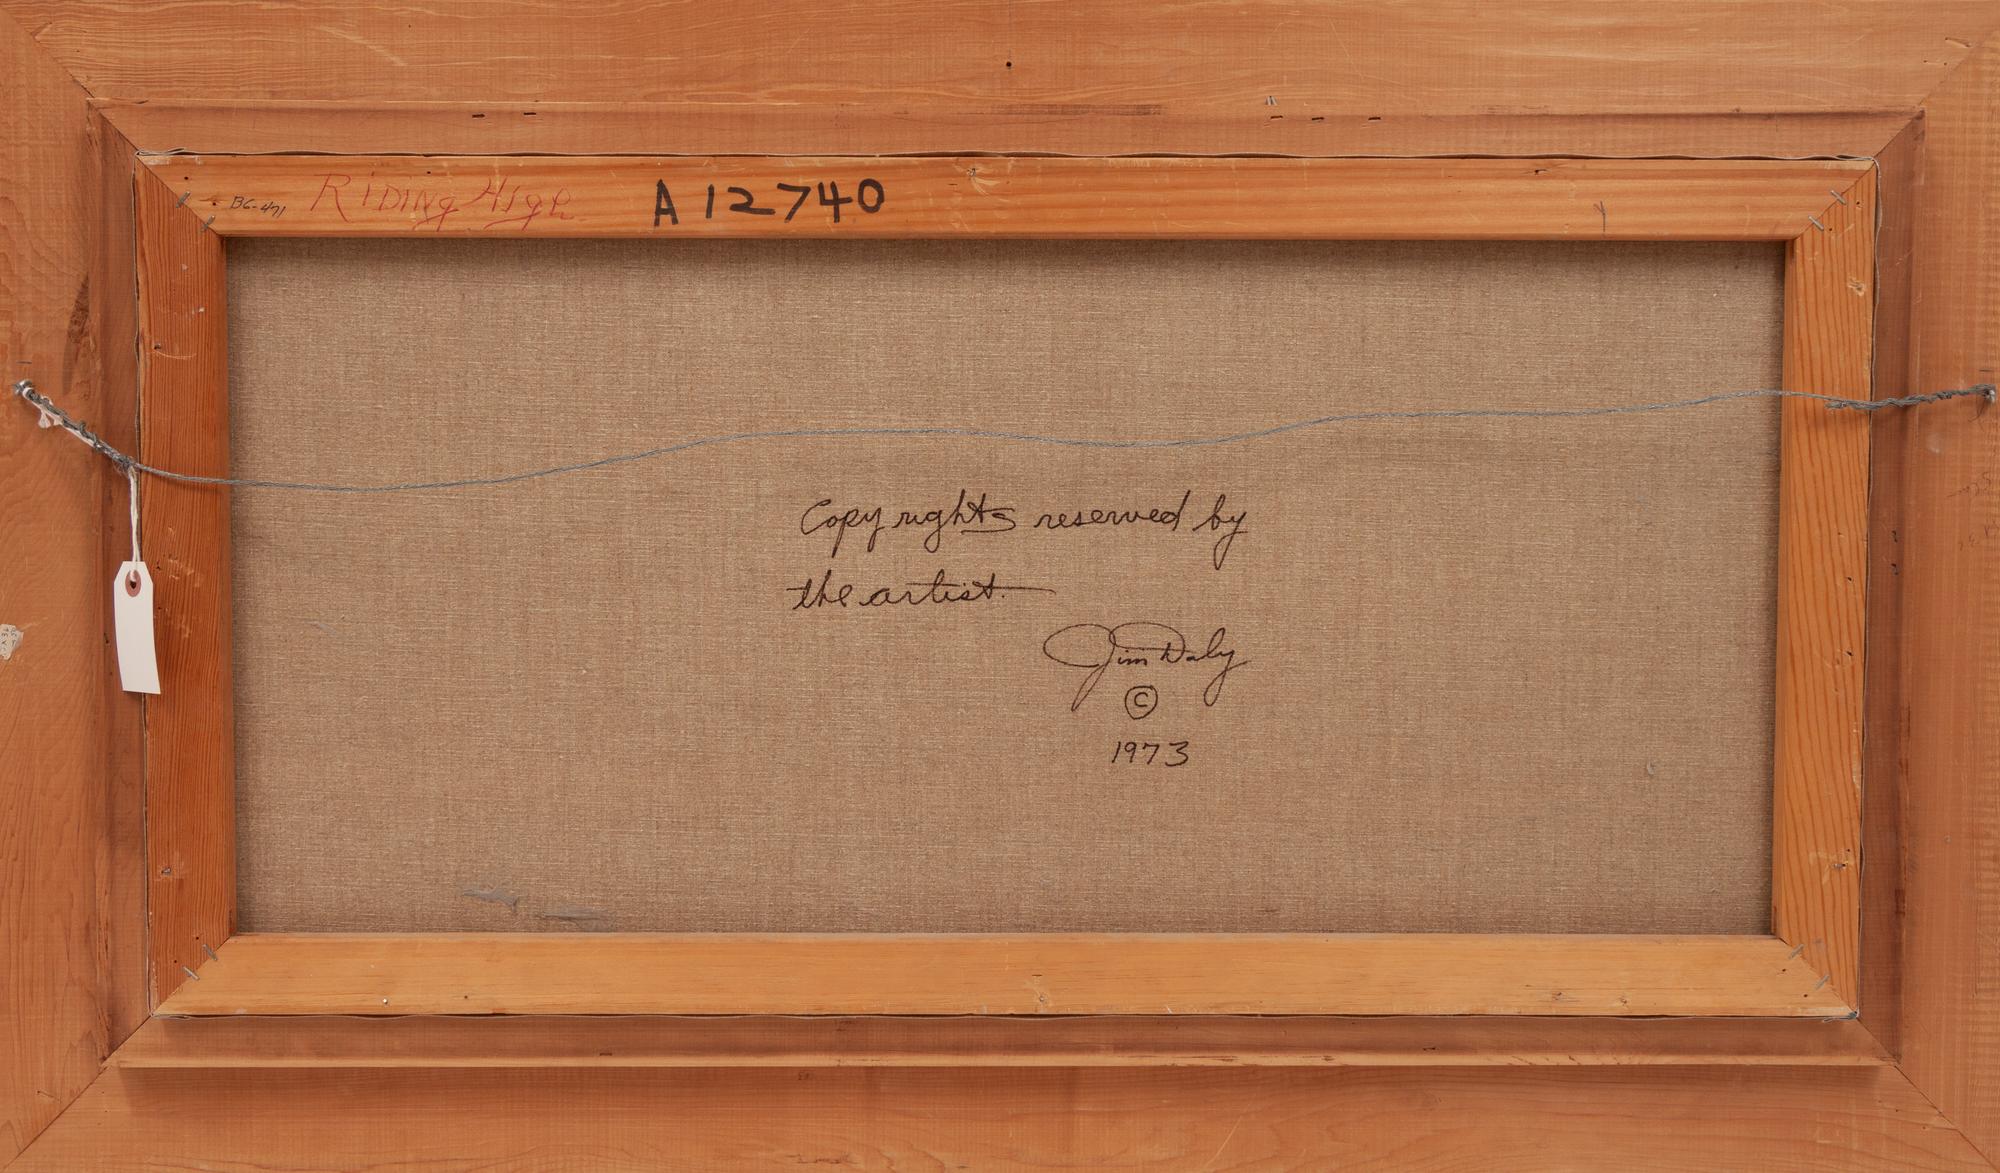 B6-471 Riding High A 12740
Copyrights reserved by
the artist.
Jim Daly
©
1973